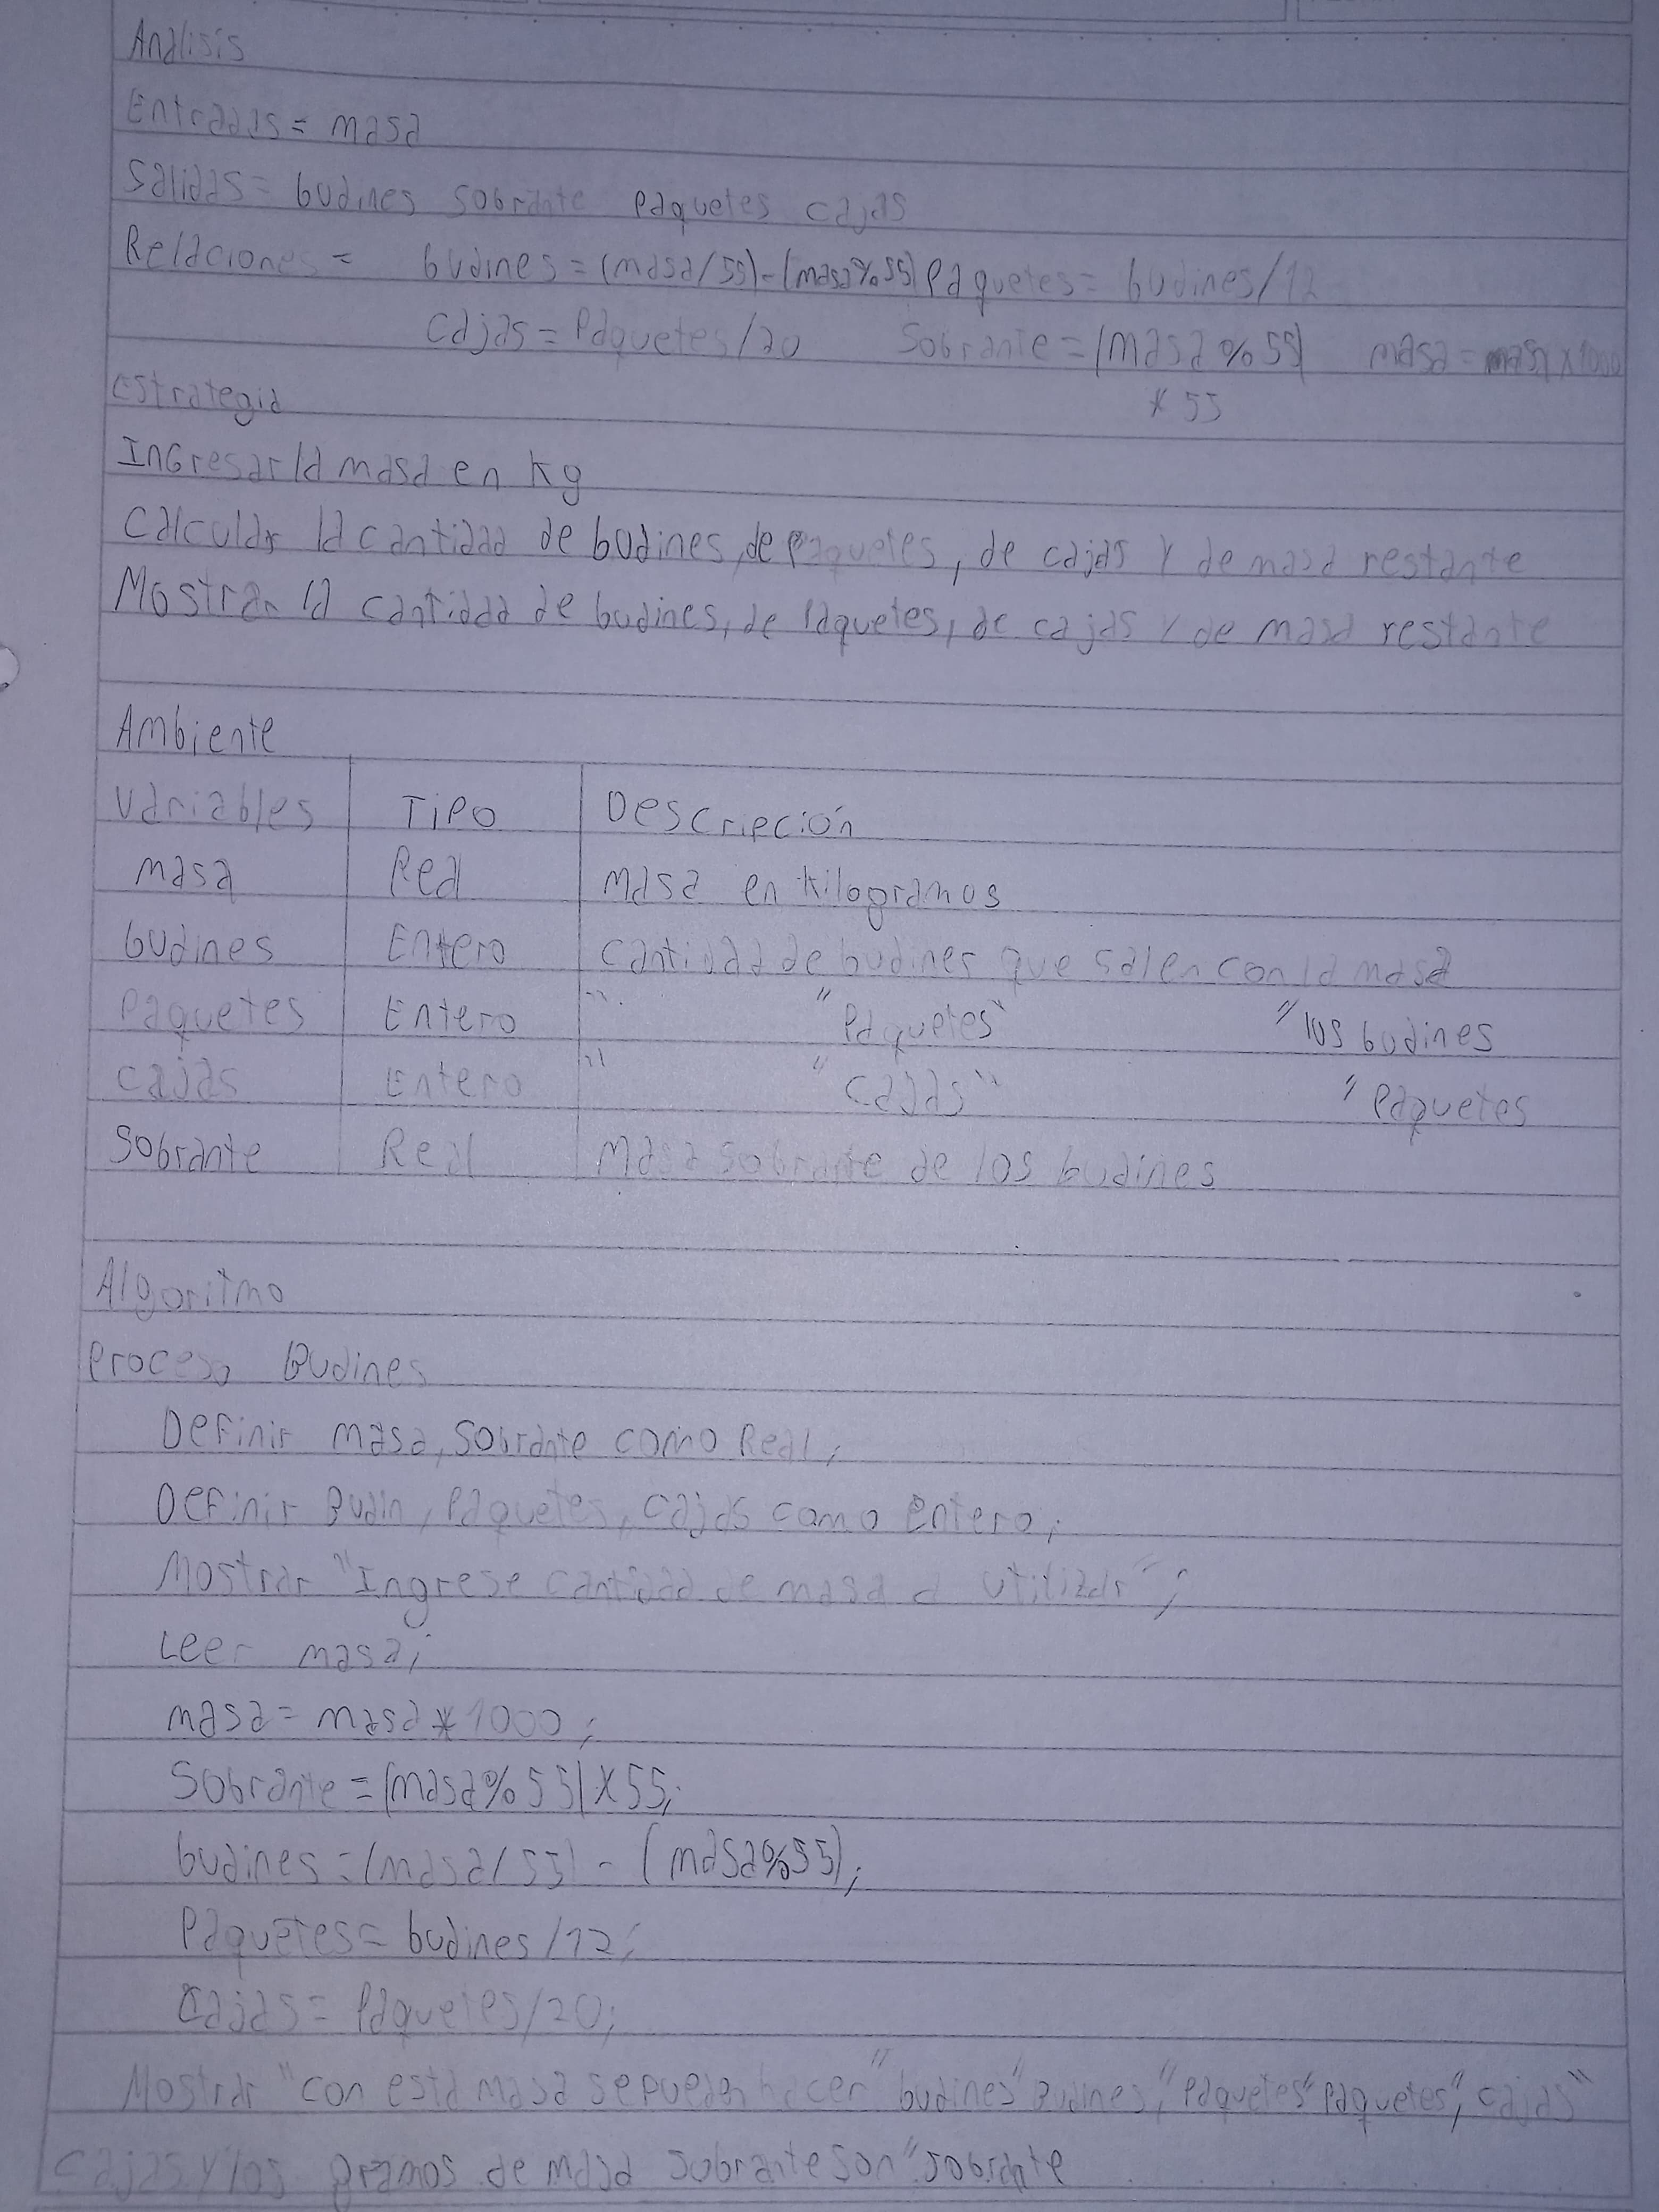 Análisis
Entradas = masa
Salidas = budines sobrante paquetes cajas
Relaciones = budines = (masa/55) - (masa%55) Paquetes = budines/12
Cajas = Paquetes/20 Sobrante = (masa % 55) masa = masa x 1000
* 55
Estrategia
Ingresar la masa en Kg
Calcular la cantidad de budines, de paquetes, de cajas y de masa restante
Mostrar la cantidad de budines, de Paquetes, de cajas y de masa restante
Ambiente
Variables Tipo Descripción
masa Real masa en Kilogramos
budines Entero cantidad de budines que salen con la masa
Paquetes Entero " " Paquetes" " los budines
cajas Entero " " cajas" " Paquetes
Sobrante Real Masa sobrante de los budines
Algoritmo
Proceso Budines
Definir masa, sobrante como Real;
Definir Budin, Paquetes, cajas como entero;
Mostrar "Ingrese cantidad de masa a utilizar";
Leer masa;
masa = masa * 1000;
Sobrante = (masa % 55) x 55;
budines = (masa/55) - (masa%55);
Paquetes = budines /12;
Cajas = Paquetes/20;
Mostrar "con esta masa se pueden hacer" budines" Budines," Paquetes" Paquetes", cajas"
cajas y los gramos de masa sobrante son" sobrante